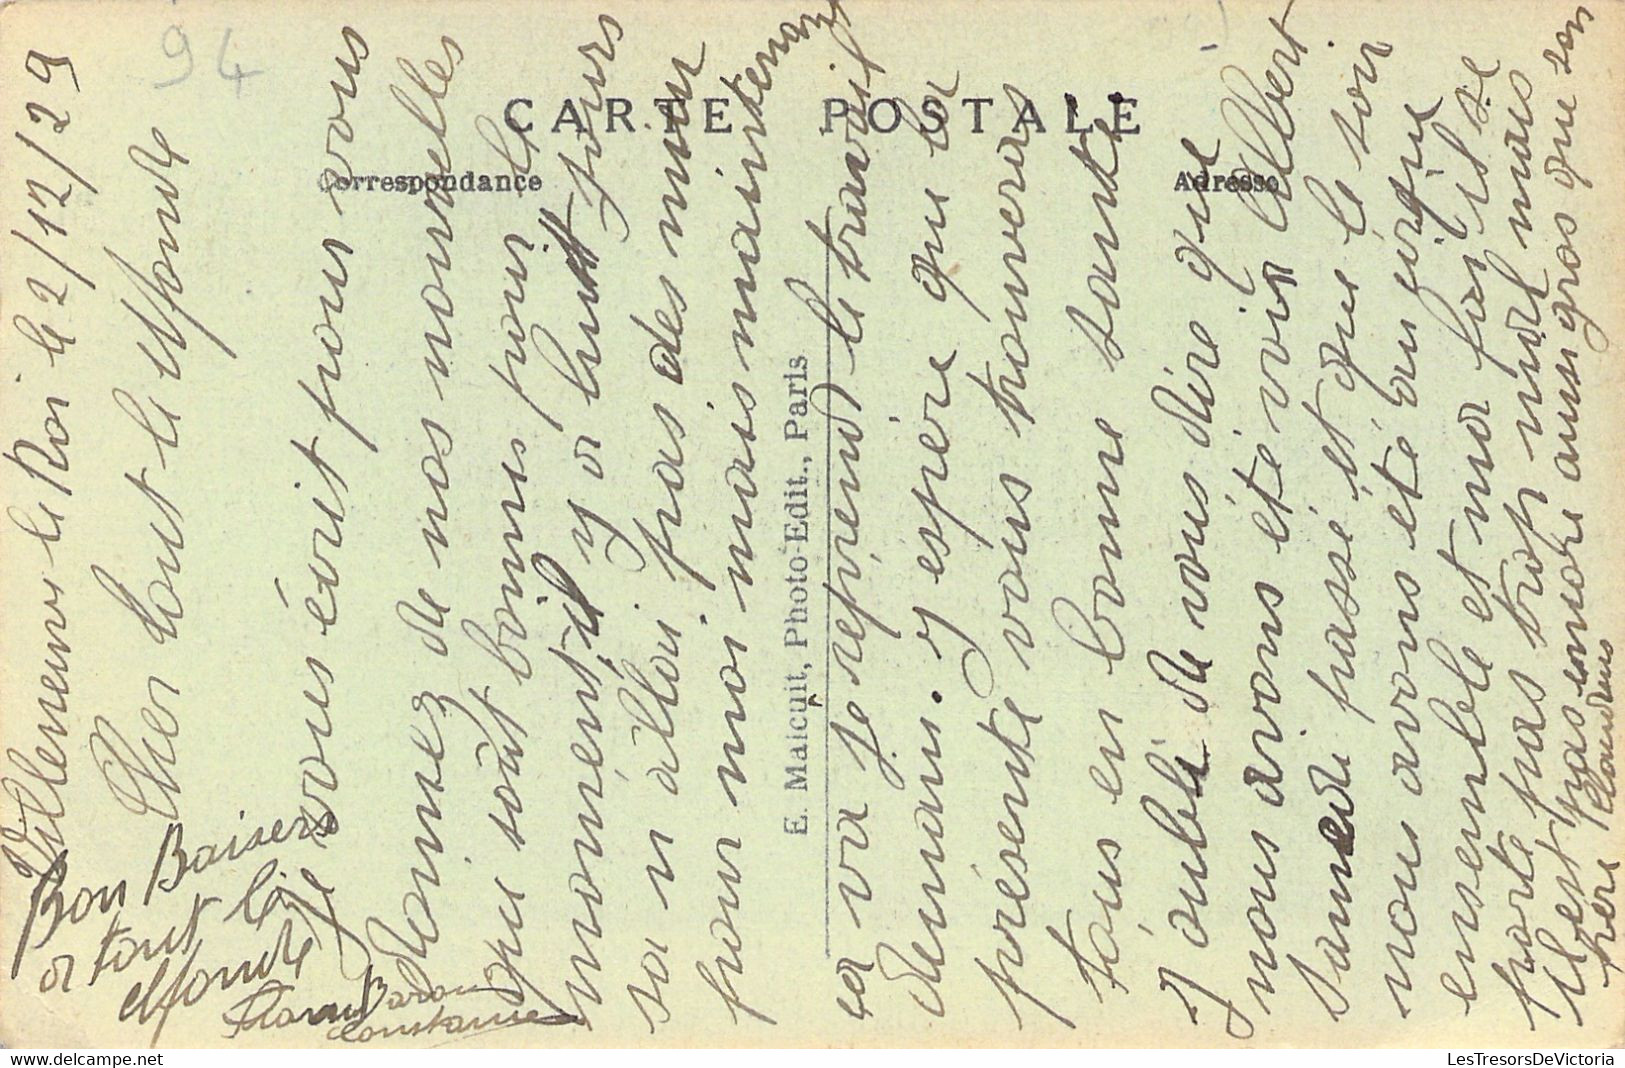 94
CARTE POSTALE
Correspondance
Adresse
E. Maicuit, Photo-Edit., Paris
Villeneuve le Roi le 2/12/29
Cher tout le Monde
Je vous écrit pour vous
donnez de nos nouvelles
qui sont bonnes pour le
moment, il y a huit jours
sa n allai pas des mieux
pour moi mais maintenant
ça va je reprend le travail
demain. j espère que la
présente vous trouveras
tous en bonne santé
j oubli de vous dire que
nous avons été voir Albert
Samedi passé et que le soir
nous avons été au cirque
ensemble et ma foi il se
porte pas trop mal mais
il est pas encore aussi gros que son
père
Bon Baisers
a tout le
Monde
Baron
Constance
LesTresorsDeVictoria